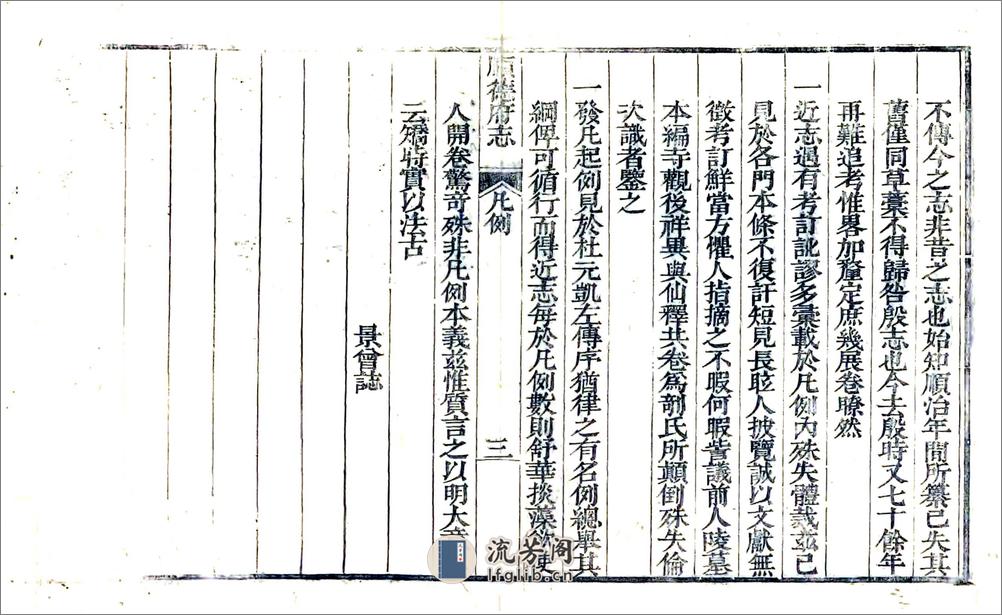 不傳今之志非昔之志也始知順治年間所纂已失其
舊僅同草藁不得歸咎殷志也今去殷時又七十餘年
再難追考惟畧加釐定庶幾展卷瞭然
一近志遇有考訂訛謬多彙載於凡例內殊失體裁茲已
見於各門本條不復訐短見長眩人披覽誠以文獻無
徵考訂鮮當方懼人指摘之不暇何暇訾議前人陵墓
本編寺觀後祥異與仙釋共卷爲剞氏所顛倒殊失倫
次識者鑒之
一發凡起例見於杜元凱左傳序猶律之有名例總舉其
綱俾可循行而得近志每於凡例數則舒華掞藻欲使
順德府志 凡例 三
人開卷驚奇殊非凡例本義茲惟質言之以明大義
云矯時實以法古
景曾誌
流芳阁
lfglib.cn